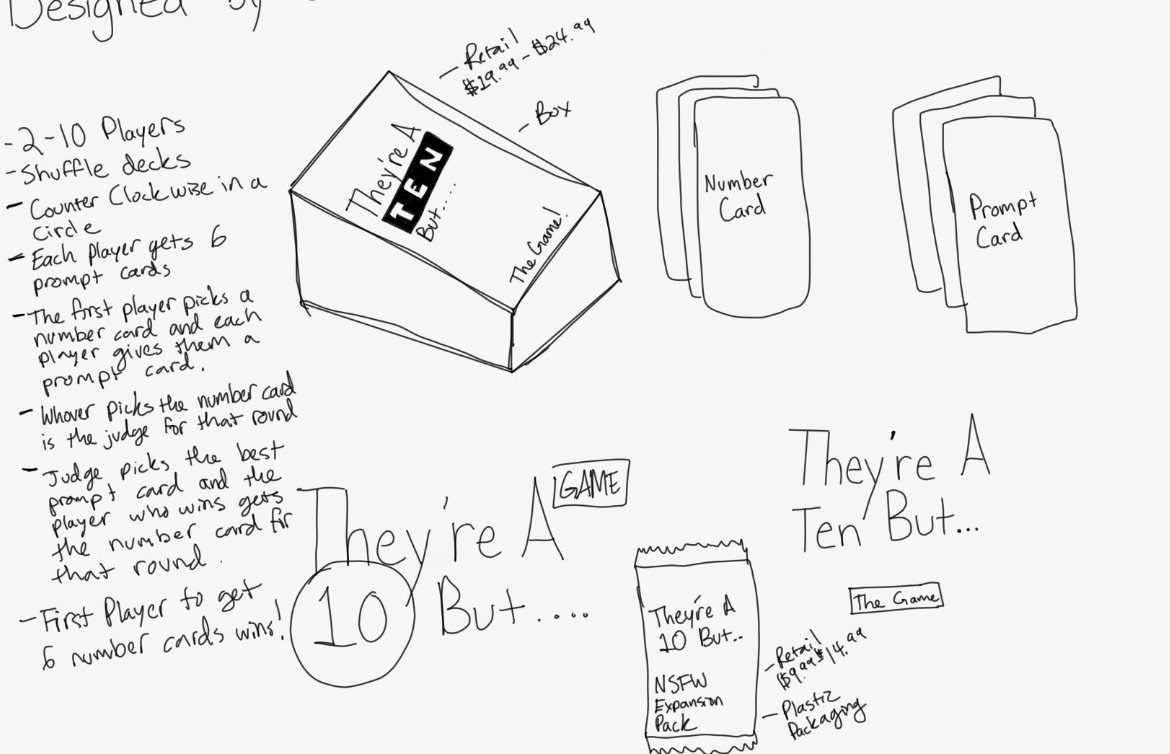 Designed by
- 2-10 Players
- Shuffle decks
- Counter Clockwise in a
circle
- Each Player gets 6
prompt cards
- The first player picks a
number card and each
player gives them a
prompt card.
- Whover picks the number card
is the judge for that round
- Judge picks the best
prompt card and the
player who wins gets
the number card for
that round.
- First Player to get
6 number cards wins!
- Retail
$19.99 - $24.99
- Box
They're A
TEN
But....
The Game!
Number
Card
Prompt
Card
They're A
GAME
10 But....
They're A
Ten But...
The Game
They're A
10 But..
NSFW
Expansion
Pack
- Retail
$9.99 $14.99
- Plastic
Packaging